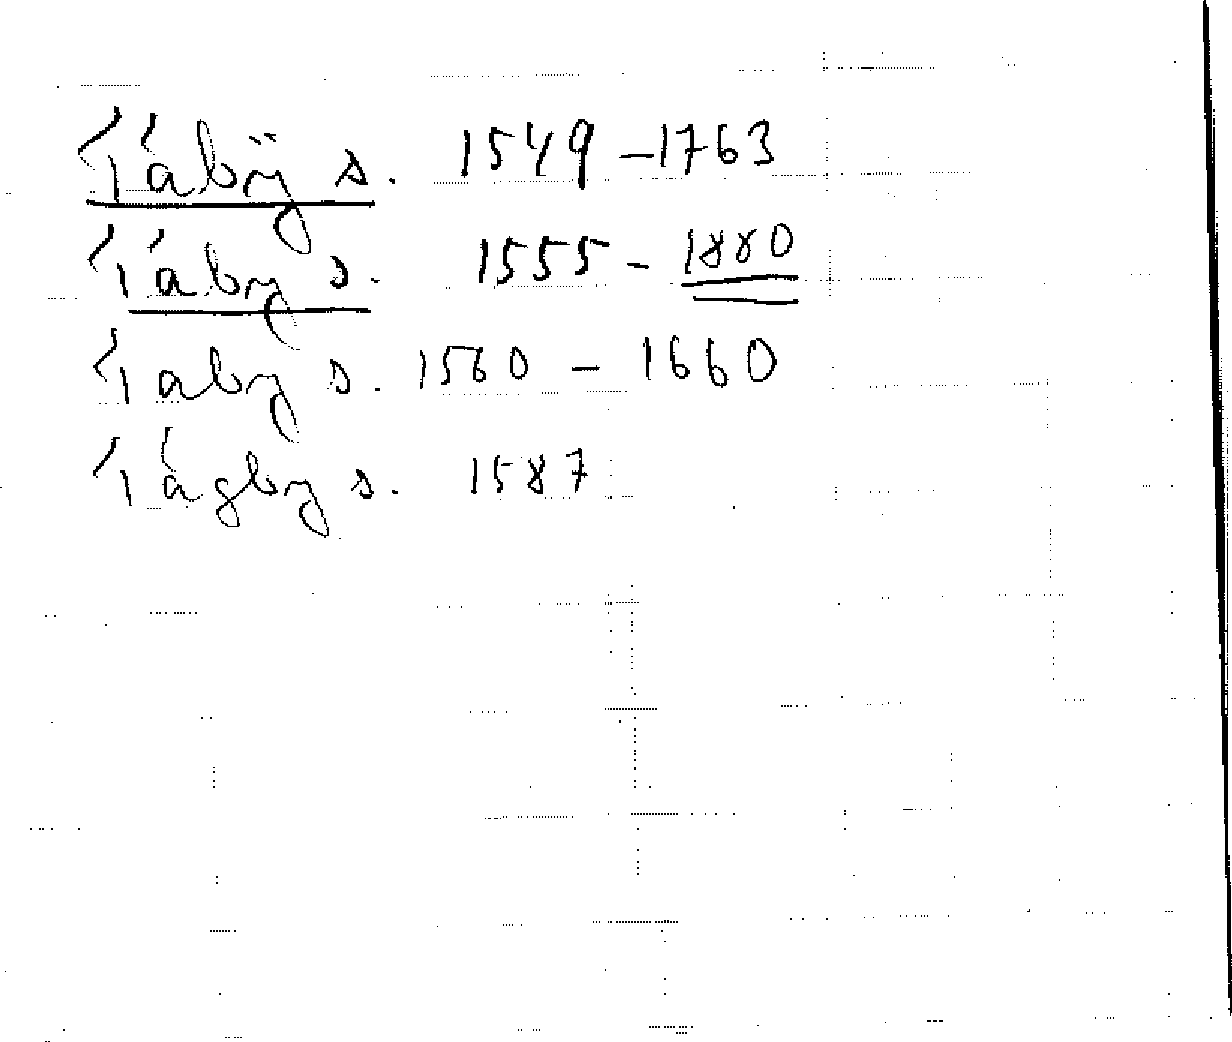 Tåbÿ s. 1549-1763
Tåby s. 1555-1880
Taby s. 1560-1660
Tågby s. 1587